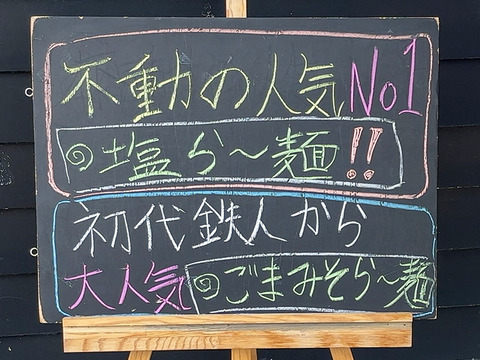 不動の人気No1
塩ら〜麺!!
初代鉄人から
大人気 ごまみそら〜麺